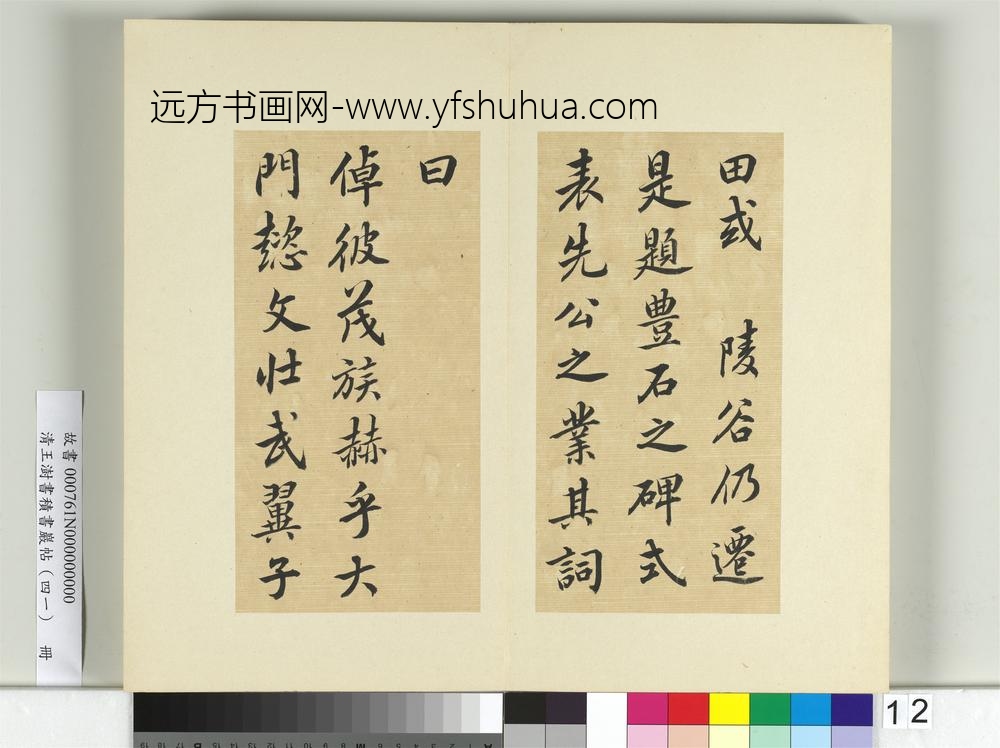 远方书画网-www.yfshuhua.com
田或 陵谷仍遷
是題豊石之碑式
表先公之業其詞
曰
倬彼茂族赫乎大
門懿文壮武翼子
故書 000761N000000000
清王澍書積書巖帖（四一） 冊
12